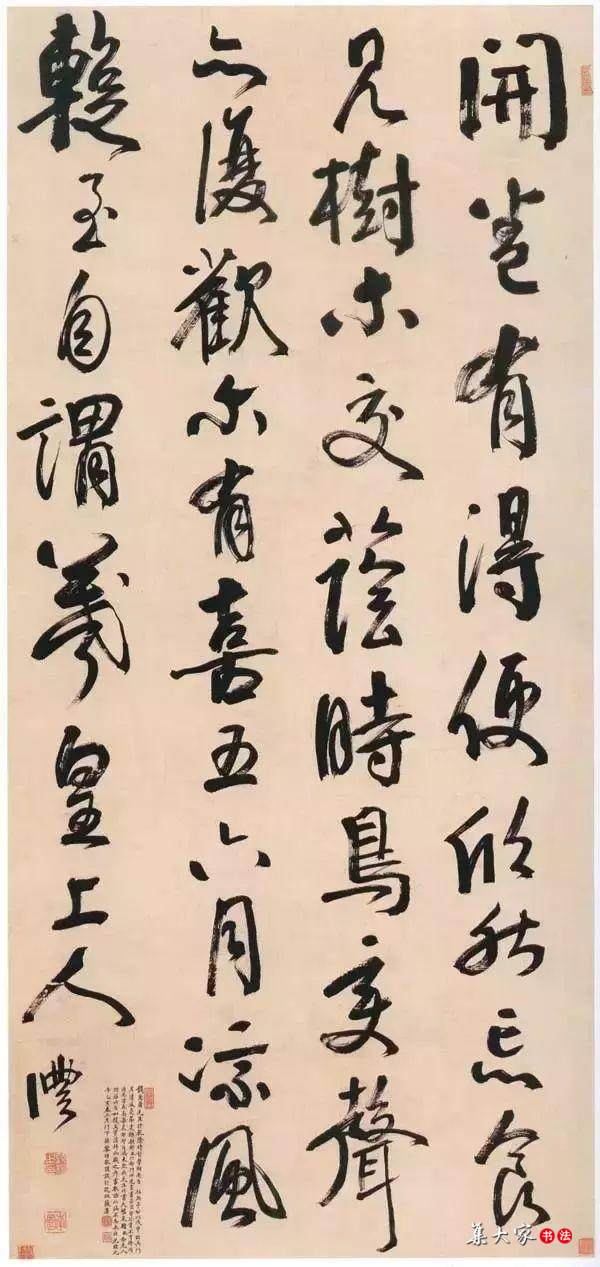 開卷有得便欣然忘食
見樹木交蔭時鳥变聲
亦復歡尔有喜五六月涼風
暫至自謂羲皇上人
灃
集大家书法